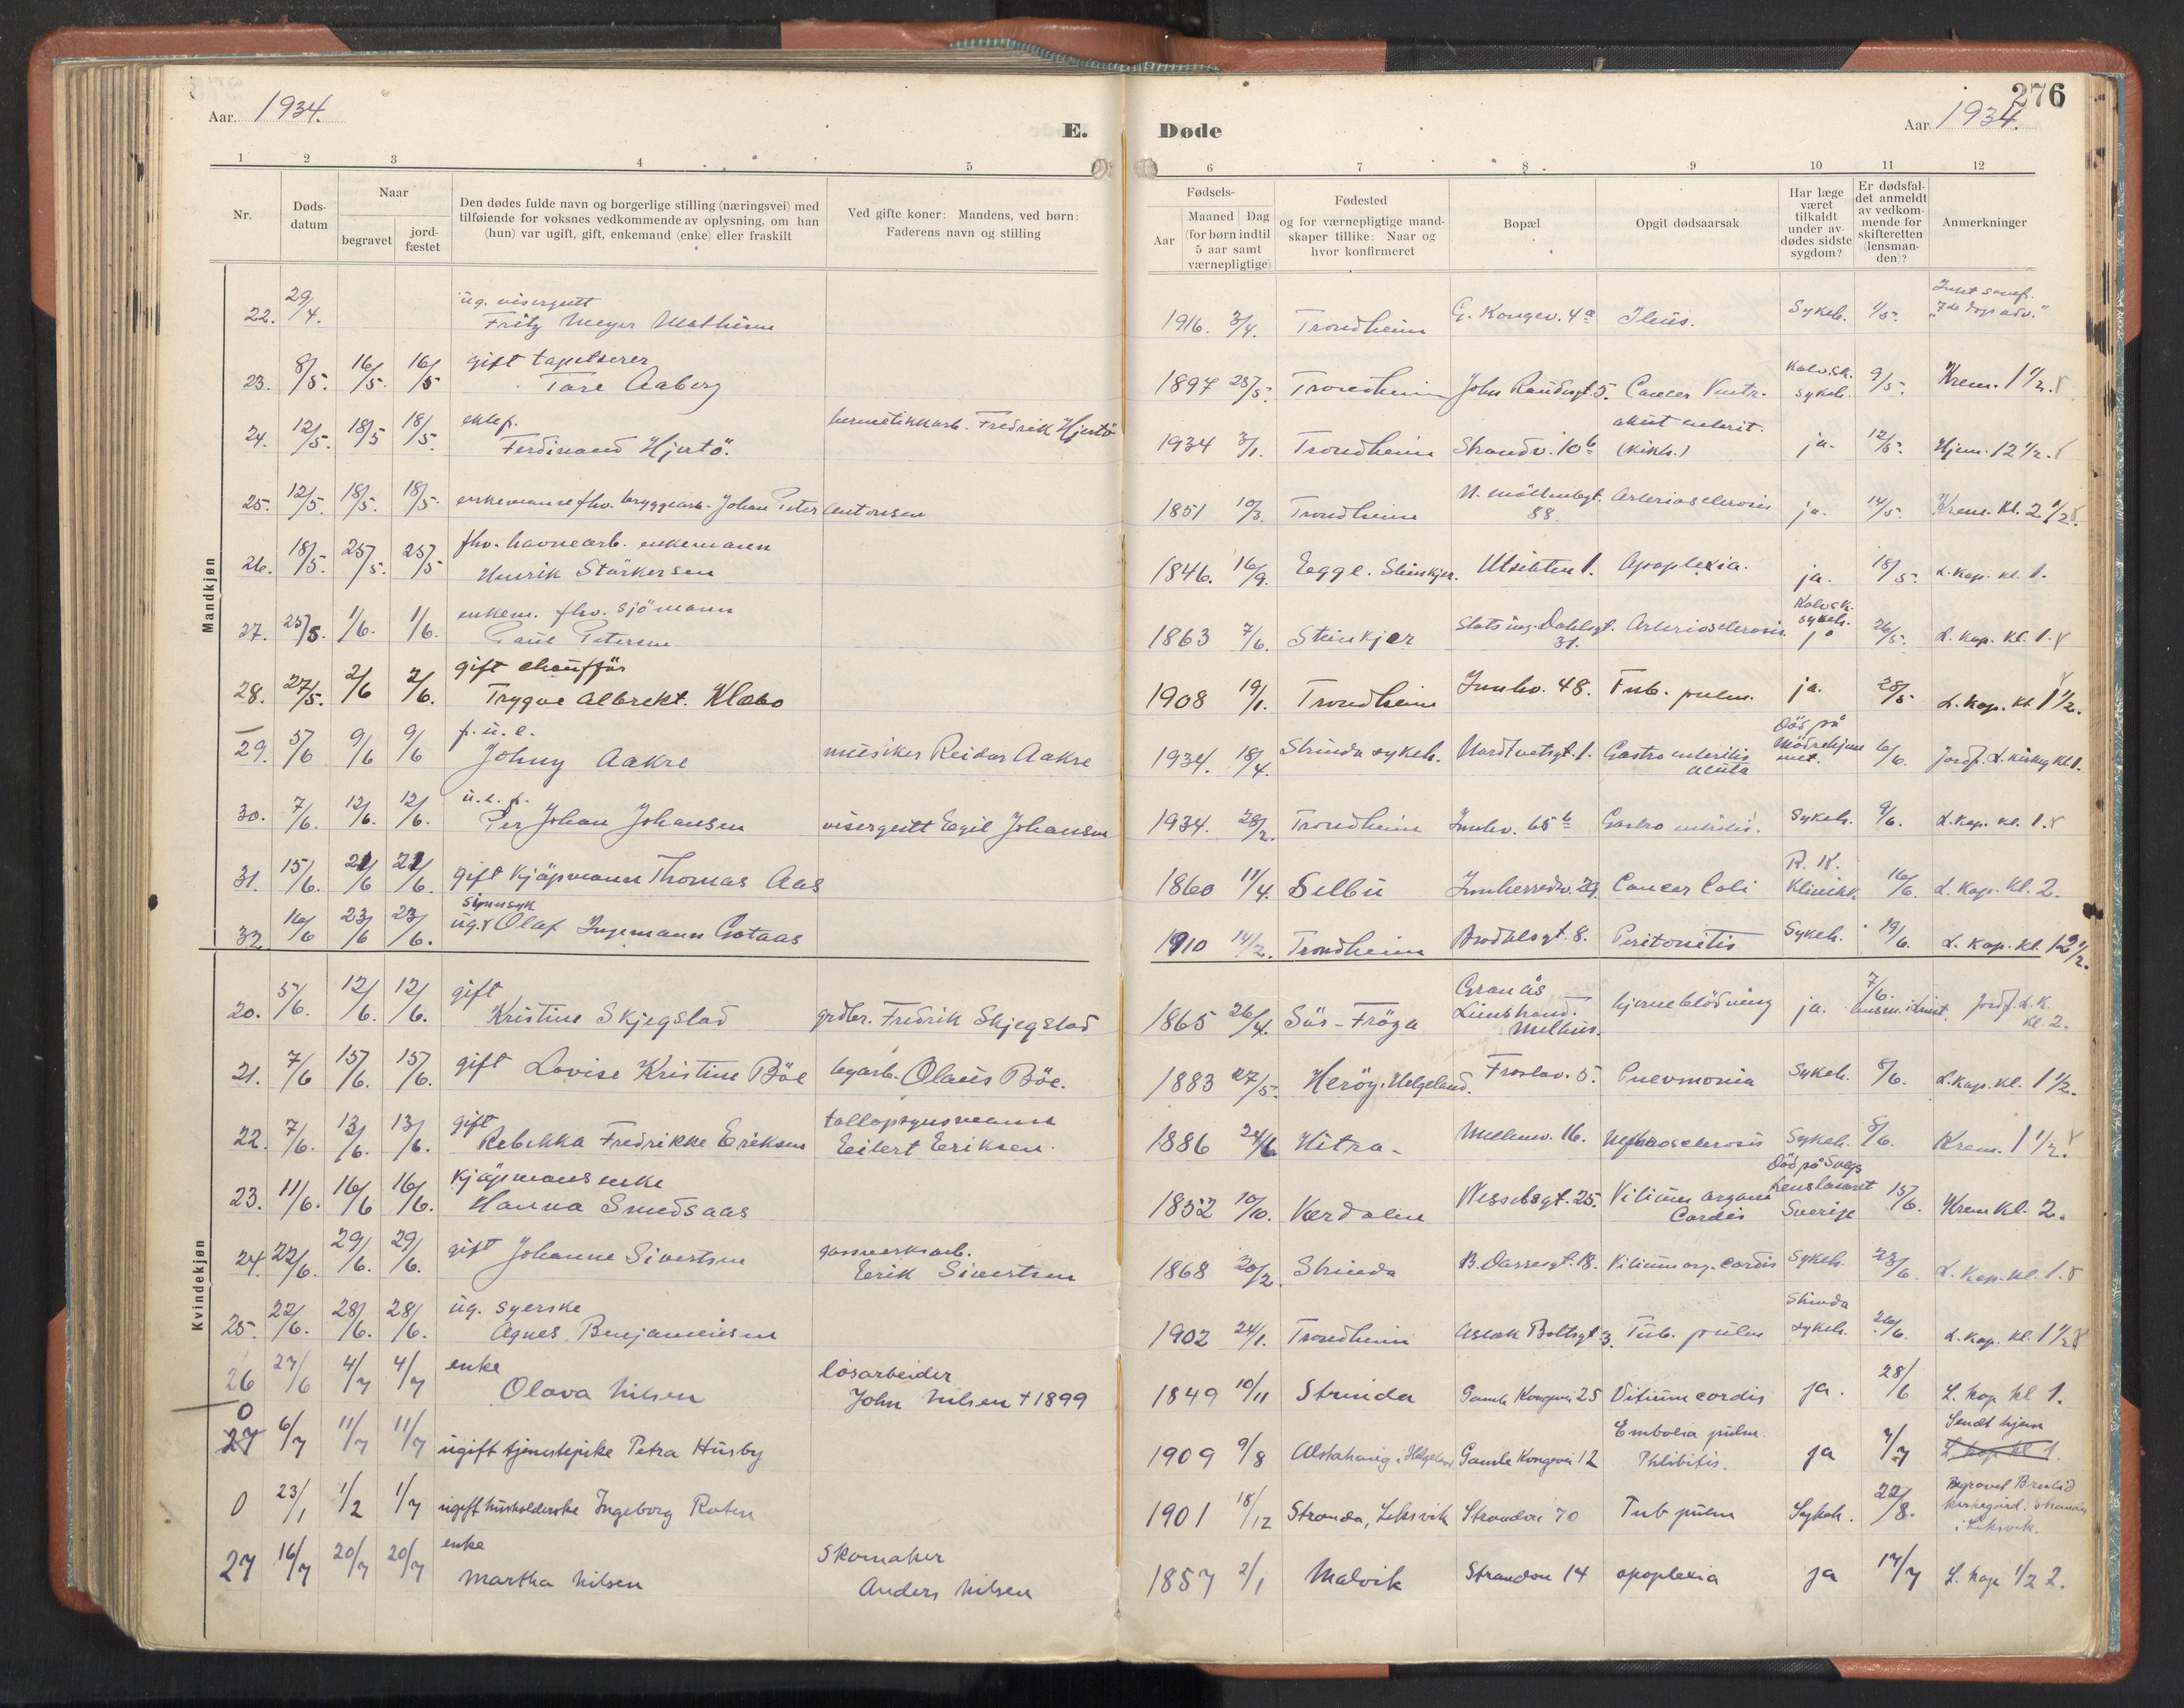 276
Aar. 1934.
E. Døde
Aar 1934.
1 2 3 4 5 6 7 8. 9 10 11 12
Nr.
Døds-
datum
Naar
begravet
jord-
fæstet
Den dødes fulde navn og borgerlige stilling (næringsvei) med
tilføiende for voksnes vedkommende av oplysning, om han
(hun) var ugift, gift, enkemand (enke) eller fraskilt
Ved gifte koner: Mandens, ved børn:
Faderens navn og stilling
Fødsels-
Aar
Maaned Dag
(for børn indtil
5 aar samt
værnepligtige)
Fødested
og for værnepligtige mand-
skaper tillike: Naar og
hvor konfirmeret
Bopæl
Opgit dødsaarsak
Har læge
været
tilkaldt
under av-
dødes sidste
sygdom?
Er dødsfal-
det anmeldt
av vedkom-
mende for
skifteretten
(lensman-
den)?
Anmerkninger
Mandkjøn
22. 29/4. ug. visergutt
Fritz Meyer Mathisen
1916. 3/4. Trondheim G. Kongev. 4a Ileus. Sykeh. 1/5. "7de dags adv."
23. 8/5. 16/5. 16/5 gift tapetserer
Tore Aaberg
1897 25/5. Trondheim John Raudsgt 5. Cancer Ventr. Kalvsk. sykeh. 9/5. Krem. 1 1/2.
24. 12/5. 18/5 18/5. ektef. hermetikkarb. Fredrik Hjertö
Ferdinand Hjertö.
1934 3/1. Trondheim Strandv. 10b akut enterit. (kikh.) ja. 12/5. Hjem. 12 1/2.
25. 12/5. 18/5. 18/5. enkemann fhv. bryggearb. Johan Peter Antonsen
1851 10/3. Trondheim N. möllenbgt. 88. Arteriosclerosis ja. 14/5. Krem. Kl. 2 1/2.
26. 18/5. 25/5. 25/5 fhv. havnearb. enkemann
Henrik Störkersen
1846. 16/9. Egge. Steinkjer. Utsikten 1. Apoplexia. ja. 18/5. L. Kap. kl. 1.
27. 25/5. 1/6. 1/6. enkem. fhv. sjömann
Paul Petersen
1863 7/6. Steinkjer Stats ing. Dahlsgt. 31. Arteriosclerosis. Kalvsk. sykeh. 26/5. L. Kap. Kl. 1.
28. 27/5. 2/6 2/6. gift chaufför
Trygve Albrekt. Klæbo
1908 19/1. Trondheim Innhv. 48. Tub. pulm. ja. 28/5 L. Kap. kl. 1 1/2.
29. 5/6 9/6 9/6 f. u. e.
Johny Aakre musiker Reidar Aakre
1934. 18/4. Strinda sykeh. Nardtvetsgt. 1. Gastro enteritis acuta Död på Mödrehjemmet. 6/6. Jordf. L. kirkeg Kl 1.
30. 7/6. 12/6. 12/6. u. e. f.
Per Johan Johansen visergutt Egil Johansen
1934. 28/2. Trondheim Innhv. 65b Gastro enteritis. Sykeh. 9/6. L. Kap. kl. 1.
31. 15/6. 21/6 21/6. gift kjöpmann Thomas Aas
1860 11/4. Selbu Innherredsv. 29. Cancer Coli R. K. Klinikk. 16/6. L. Kap. Kl. 2.
32. 16/6 23/6 23/6. sinnsyk
ug. Olaf Ingemann Gotaas
1910 14/2. Trondheim Brodalsgt. 8. Peritonitis Sykeh. 19/6. L. Kap. kl. 12 1/2.
Kvindekjøn
20. 5/6. 12/6. 12/6. gift
Kristine Skjegstad grdbr. Fredrik Skjegstad
1865 26/4. Sör-Fröya Granås Leinstrand. Melhus. hjerneblödning ja. 7/6. lensm. i Leinst. Jordf. L. K. kl. 2.
21. 7/6 15/6. 15/6. gift Lovise Kristine Böe byarb. Olaus Böe.
1883 27/5. Heröy. Helgeland. Frostav. 5. Pnevmonia Sykeh. 8/6. L. Kap. kl. 1 1/2.
22. 7/6. 13/6. 13/6. gift tollopsynsmann
Rebekka Fredrikke Eriksen Eilert Eriksen.
1886 24/6 Hitra. Mellemv. 16. Nefrosclerosis Sykeh. 8/6. Krem. 1 1/2.
23. 11/6. 16/6 16/6. Kjöpmannsenke
Hanna Smedsaas
1852 10/10. Værdalen Wesselsgt. 25. Vitium organ. Cordis Död på Svegs Lenslasaret Sverige 15/6. Krem Kl. 2.
24. 22/6. 29/6. 29/6. gift Johanne Sivertsen gassverksarb.
Erik Sivertsen
1868 20/2. Strinda P. Dassesgt. 18. Vitium org. cordis Sykeh. 23/6. L. Kap. kl. 1.
25. 22/6. 28/6. 28/6. ug. syerske
Agnes Benjaminsen
1902 24/1. Trondheim Aslak Boltsgt 3. Tub. pulm Strinda sykeh. 26/6. L. Kap. kl. 1 1/2
26 27/6 4/7 4/7 enke lösarbeider
Olava Nilsen John Nilsen † 1899
1849 10/11 Strinda Gamle Kongevei 25 Vitium cordis ja. 28/6 L. Kap kl 1.
0 27 6/7 11/7 11/7 ugift tjenestepike Petra Husby
1909 9/8 Alstahaug, Helgeland Gamle Kongevei 12 Embolia pulm. Phlibitis. ja 7/7 Sendt hjem L. Kap kl 1.
0 23/1 1/2 1/7 ugift husholderske Ingeborg Roten
1901 18/12 Stranda, Leksvik Strandvei 70 Tub pulm Sykeh. 22/8. Begravet kirkegård. Stranda i Leksvik.
27 16/7 20/7 20/7 enke Skomaker
Martha Nilsen Anders Nilsen
1857 2/1 Malvik Strandvei 14 apoplexia ja 17/7 L. Kap 1/2 2.